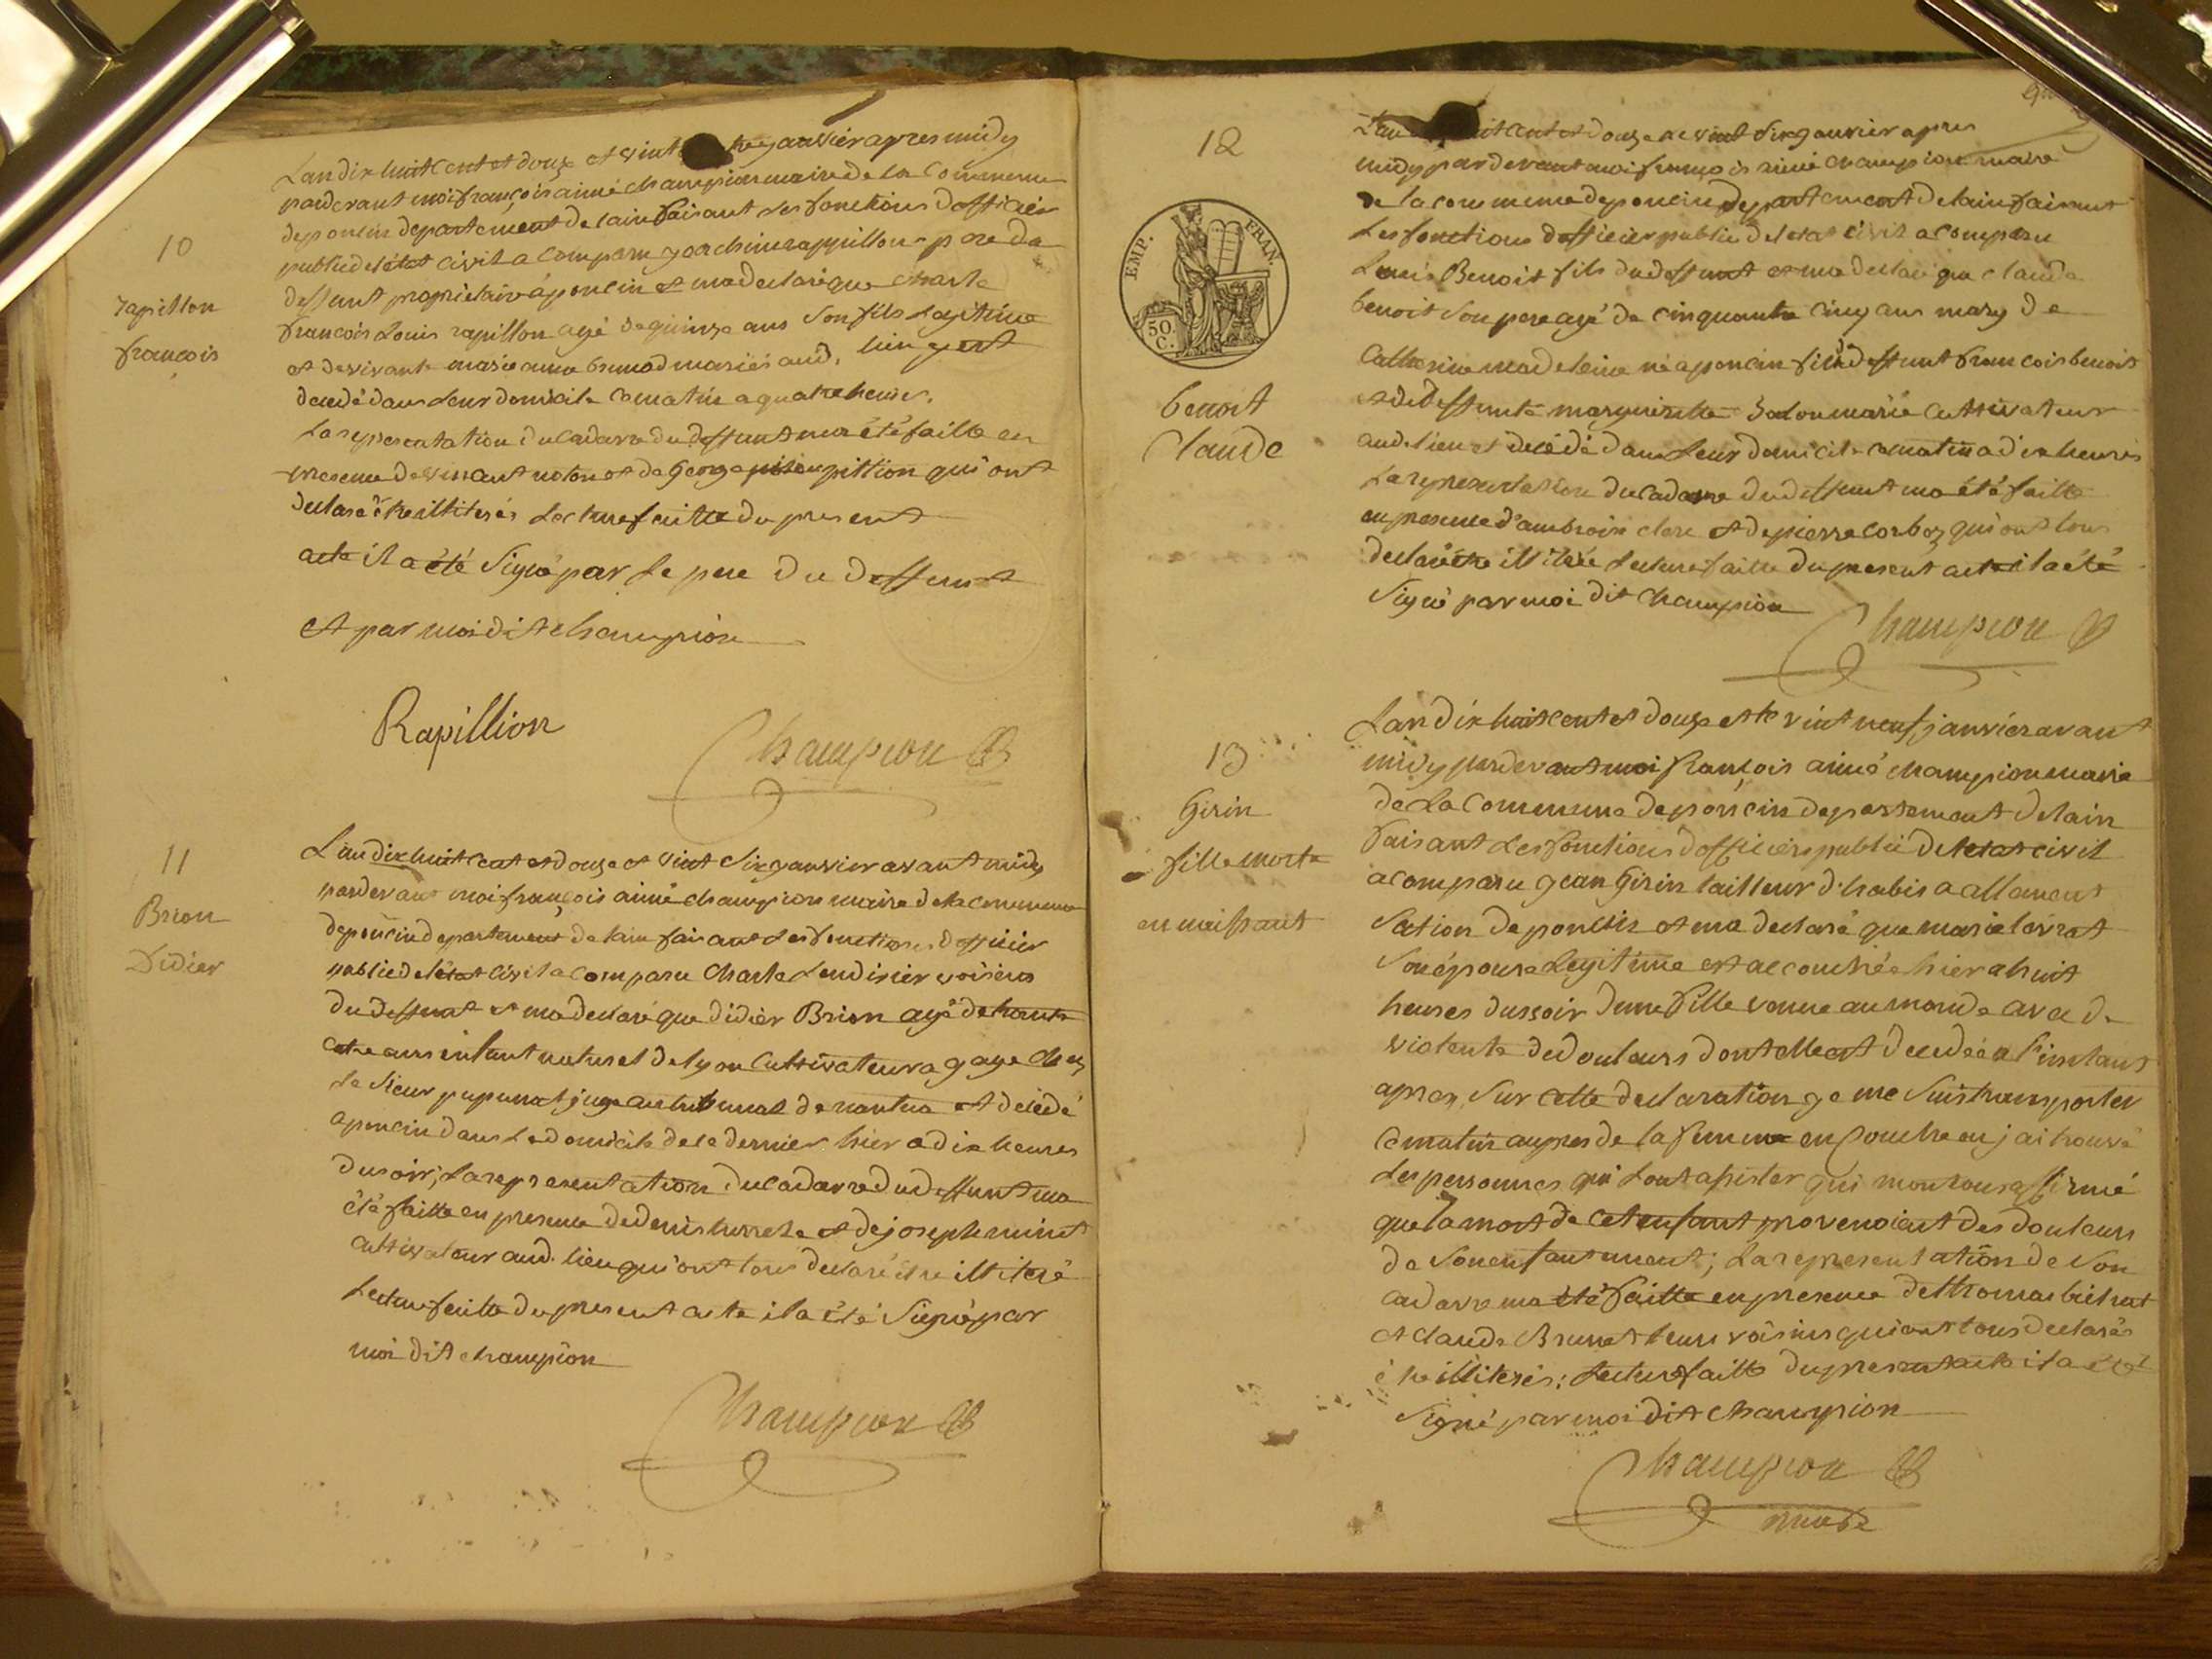 10
rapillon
françois
Lan dix huit cent et douze et vint janvier apres midy
pardevant moi françois aimé champion maire de la Commune
deponcin departement de lain faisant les fonctions dofficier
public de létat civil a comparu joachim rappillon pere du
deffunt propriétaire a poncin et ma declaré que charle
françois Louis rapillon agé de quinze ans son fils legitime
et de vivante marie anne mariés aud. lieu est
decedé dans leur domicile ce matin a quatre heures.
La representation du cadavre du deffunt ma été faitte en
presence de vincent et de george pittion qui ont
declaré être illiterés Lecture faitte du present
acte il a été signé par le pere du deffunt
et par moi dit champion
Rapillion
Champion
11
Brion
Didier
Lan dix huit cent et douze et vint six janvier avant midy
pardevant moi françois aimé champion maire de la commune
deponcin departement de lain faisant les fonctions dofficier
public de létat civil a comparu Charle voisin
du deffunt et ma declaré que didier Brion agé de trante
ans enfant naturel de lyon cultivateur a gage chez
le sieur juge au tribunal de nantua et decedé
a poncin dans le domicile de ce dernier hier a dix heures
du soir; La representation du cadavre du deffunt ma
été faitte en presence de denis et de joseph
cultivateur aud. lieu qui ont tous declaré être illiteré
Lecture faitte du present acte il a été signé par
moi dit champion
Champion
12
EMP. FRAN.
50.
C.
benoit
Claude
Lan cent et douze le vint six janvier apres
midy pardevant moi françois aimé champion maire
de la commune deponcin departement de lain faisant
les fonctions dofficier public de létat civil a comparu
Benoit fils du deffunt et ma declaré que claude
benoit son pere agé de cinquante cinq ans mary de
Catherine madeleine né a poncin fils de deffunt françois benoit
et de deffunte marguerite marié cultivateur
aud. lieu et decédé dans leur domicile ce matin a dix heures
La representation du cadavre du deffunt ma été faitte
en presence d'ambroise clerc et de pierre corboz qui ont tous
declaré être illiterés Lecture faitte du present acte il a été
signé par moi dit champion
Champion
13
Girin
fille morte
en naissant
Lan dix huit cent et douze et le vint neuf janvier avant
midy pardevant moi françois aimé champion maire
de la Commune deponcin departement de lain
faisant les fonctions dofficier public de létat civil
a comparu jean Girin tailleur d'habis a allement
section de poncin et ma declaré que marie
son épouse legitime est accouchée hier a huit
heures du soir dune fille venue au monde avec de
violente dedouleurs dont elle est decedée a l'instant
apres, sur cette declaration je me suis transporter
ce matin aupres de la femme en couche ou j ai trouvé
les personnes qui lont assister qui mont tous affirmé
que la mort de cet enfant provenoient des douleurs
de son enfantement; La representation de son
cadavre ma été faitte en presence de thomas
et claude Brunet leurs voisins qui ont tous declarés
être illiterés; Lecture faitte du present acte il a été
signé par moi dit champion
Champion
maire